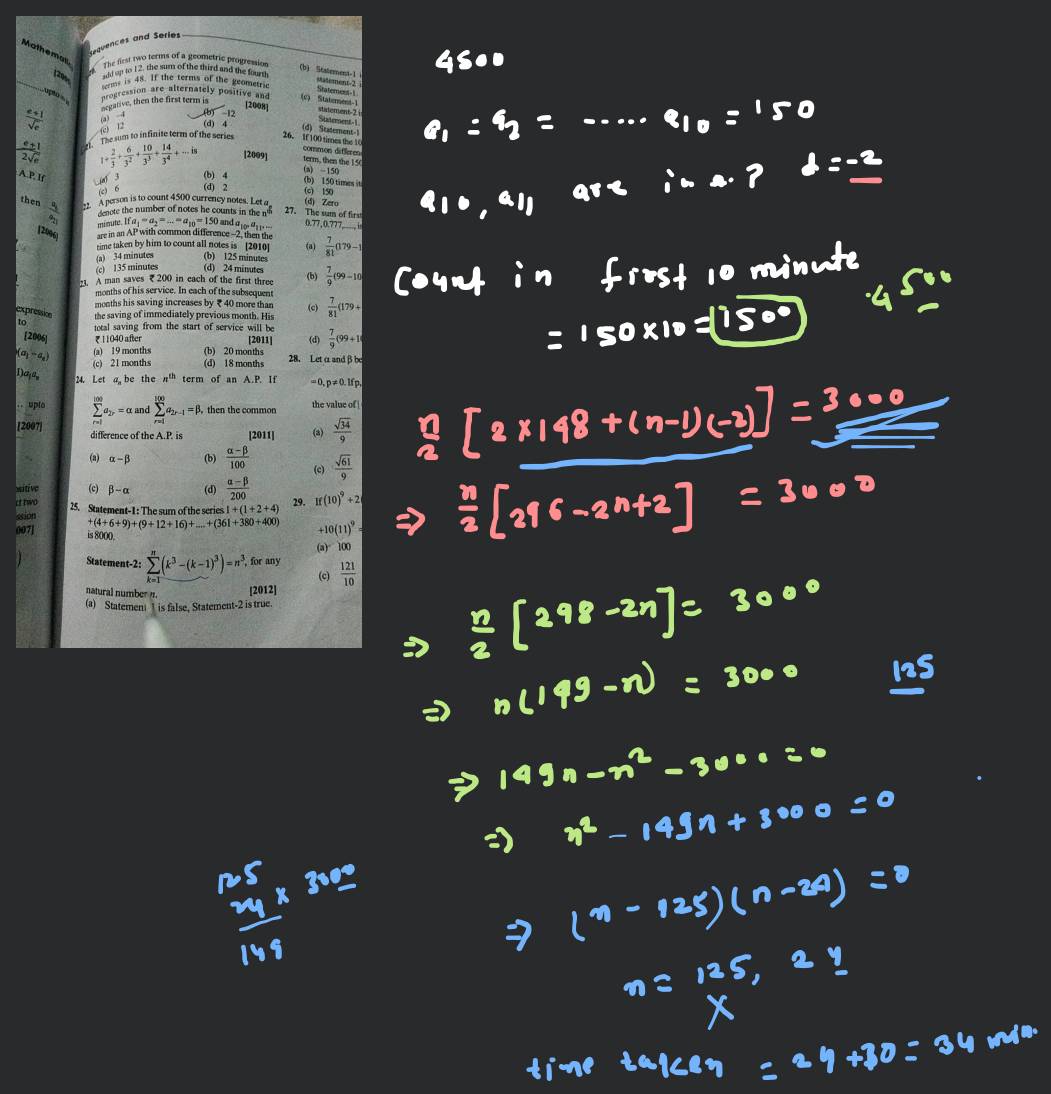 Mathemati
Sequences and Series
The first two terms of a geometric progression
add up to 12. the sum of the third and the fourth
terms is 48. If the terms of the geometric
progression are alternately positive and
negative, then the first term is [2008]
(a) –4 (b) –12
(c) 12 (d) 4
21. The sum to infinite term of the series
1+2/3+6/3²+10/3³+14/3⁴+... is [2009]
(a) 3 (b) 4
(c) 6 (d) 2
22. A person is to count 4500 currency notes. Let aₙ
denote the number of notes he counts in the nth
minute. If a₁ = a₂ = ... = a₁₀ = 150 and a₁₀, a₁₁, ...
are in an AP with common difference –2, then the
time taken by him to count all notes is [2010]
(a) 34 minutes (b) 125 minutes
(c) 135 minutes (d) 24 minutes
23. A man saves ₹ 200 in each of the first three
months of his service. In each of the subsequent
months his saving increases by ₹ 40 more than
the saving of immediately previous month. His
total saving from the start of service will be
₹ 11040 after [2011]
(a) 19 months (b) 20 months
(c) 21 months (d) 18 months
24. Let aₙ be the nth term of an A.P. If
100 100
∑ a₂ᵣ = α and ∑ a₂ᵣ₋₁ = β, then the common
r=1 r=1
difference of the A.P. is [2011]
(a) α – β (b) (α – β)/100
(c) β – α (d) (α – β)/200
25. Statement-1: The sum of the series 1 + (1 + 2 + 4)
+ (4 + 6 + 9) + (9 + 12 + 16) + .... + (361 + 380 + 400)
is 8000.
Statement-2: ∑(k³ – (k – 1)³) = n³, for any
n
k=1
natural number n. [2012]
(a) Statement 1 is false, Statement-2 is true.
(b) Statement-1
statement-2
Statement-1.
(c) Statement-1
statement-2
Statement-1.
(d) Statement-1
26. If 100 times the 10
common differen
term, then the 150
(a) –150
(b) 150 times it
(c) 150
(d) Zero
27. The sum of first
0.77, 0.777, ....,
(a) 7/81 (179 – 1
(b) 7/9 (99 – 10
(c) 7/81 (179 +
(d) 7/9 (99 + 10
28. Let α and β be
= 0, p ≠ 0. If p,
the value of |
(a) √34/9
(c) √61/9
29. If (10)⁹ + 2(
+10(11)⁹ =
(a) 100
(c) 121/10
4500
a₁ = a₂ = ..... a₁₀ = 150
a₁₀, a₁₁ are in a.p d = -2
Count in first 10 minute
4500
= 150 × 10 = 1500
n/2 [2 × 148 + (n-1)(-2)] = 3000
⇒ n/2 [296 - 2n + 2] = 3000
⇒ n/2 [298 - 2n] = 3000
⇒ n(149 - n) = 3000
125
⇒ 149n - n² - 3000 = 0
⇒ n² - 149n + 3000 = 0
125
24 × 3000
149
⇒ (n - 125)(n - 24) = 0
n = 125, 24
X
time taken = 24 + 10 = 34 min.